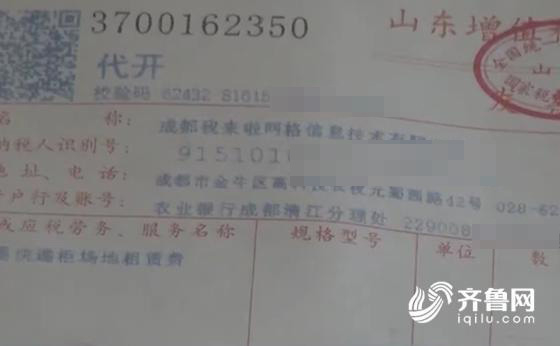 3700162350
山东增值
代开
校验码 62432 81615
全国统
山
国家税务
名 称: 成都我来啦网格信息技术有限
纳税人识别号: 9151010
地址、电话: 成都市金牛区高科技 蜀西路42号 028-62
开户行及账号: 农业银行成都清江分理处 229008
或应税劳务、服务名称 规格型号 单位 数
快递柜场地租赁费
齐鲁网
iqilu.com